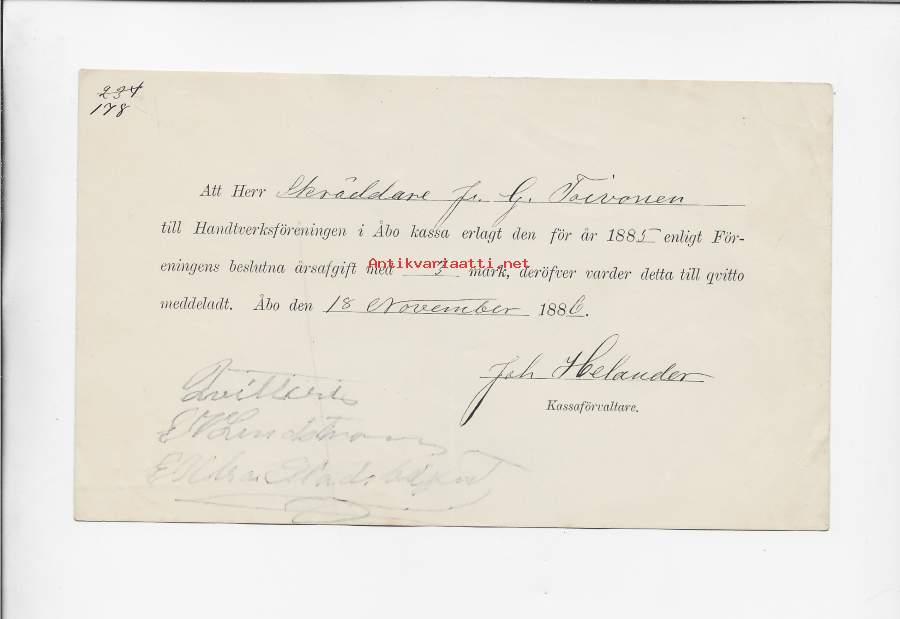 234
178
Att Herr Skräddare Fr. G. Toivonen
till Handtverksföreningen i Åbo kassa erlagt den för år 1885 enligt För-
eningens beslutna årsafgift med 3 mark, deröfver varder detta till qvitto
Antikvariaatti.net
meddeladt. Åbo den 18 November 1886.
Joh Helander
Kassaförvaltare.
Qvitteras
E Lindström